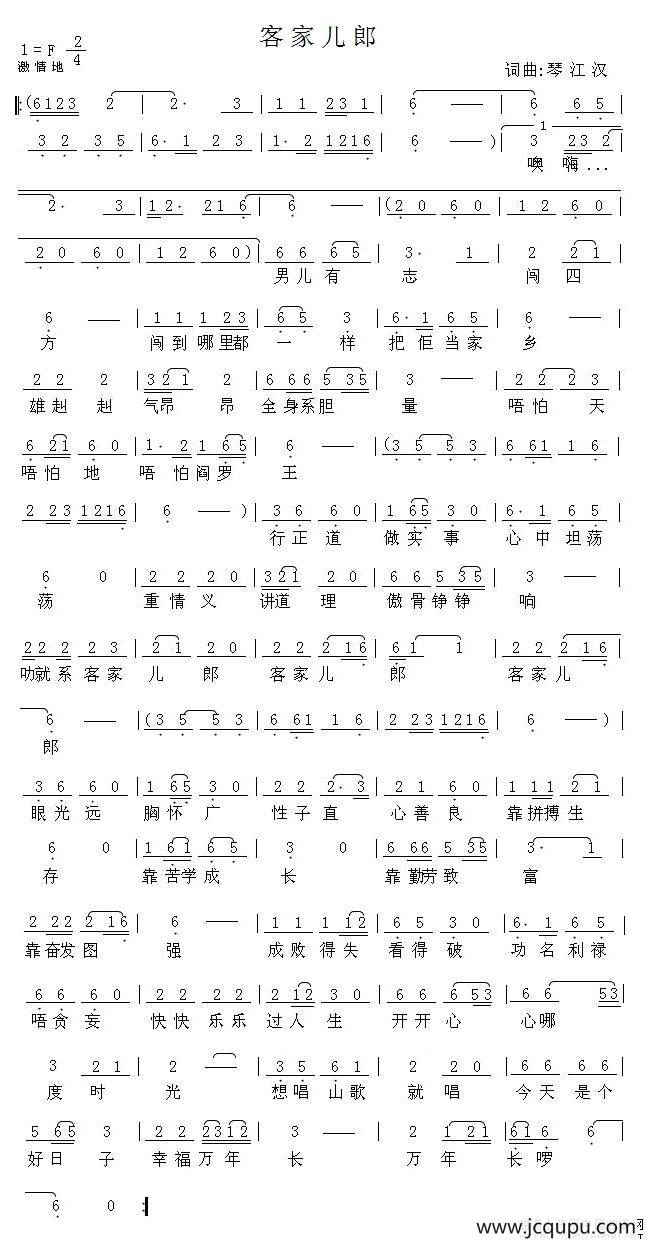 客家儿郎
1=F 2/4
激情地
词曲:琴江汉
(6123 2 2· 3 1 1 23 1 6 — 6 6 5
3 2 3 5 6· 1 2 3 1· 2 1216 6 — ) 3 23 2
1
噢 嗨...
2· 3 1 2· 21 6 6 — (2 0 6 0 1 2 6 0
2 0 6 0 1 2 6 0) 6 6 65 3· 1 2 21
男儿有 志 闯四
6 — 1 1 1 23 6 5 3 6· 1 6 5 6 —
方 闯到哪里都 一 样 把佢当家 乡
2 2 2 321 2 6 66 5 35 2 2 2 2 3
雄赳 赳 气昂 昂 全身系胆 量 唔怕 天
6 21 6 0 1· 2 1 65 6 — (3 5 5 3 6 61 1 6
唔怕地 唔怕阎罗 王
2 23 1216 6 — ) 3 6 6 0 1 65 3 0 6· 1 6 5
行正道 做实事 心中坦荡
6 0 2 2 2 0 321 2 0 6 6 5 35 3 —
荡 重情义 讲道 理 傲骨铮铮 响
22 2 2 3 2 1 2 0 2 2 2 16 6 1 1 2 2 2 16
叻就系客家 儿 郎 客家儿 郎 客家儿
6 — (3 5 5 3 6 61 1 6 2 23 1216 6 — )
郎
3 6 6 0 1 65 3 0 2 2 2· 3 2 1 6 0 1 11 2 1
眼光远 胸怀广 性子直 心善良 靠拼搏生
6 0 1 61 6 5 3 0 6 66 5 35 3· 1
存 靠苦学成 长 靠勤劳致 富
2 22 2 16 6 — 1 1 1 12 6 5 3 0 6· 1 6 5
靠奋发图 强 成败得失 看得破 功名利禄
6 6 6 0 2 2 2 2 2 12 3 0 6 6 6 53 6 6 53
唔贪妄 快快乐乐 过人生 开开心 心哪
3 21 2 — 3 5 6 1 2 2 0 6 6 6 1
度时 光 想唱山歌 就唱 今天是个
5 65 3 2 2 2312 3 — 2 1 21 61 6 6
好日 子 幸福万年 长 万年 长啰
6 0
www.jcqupu.com